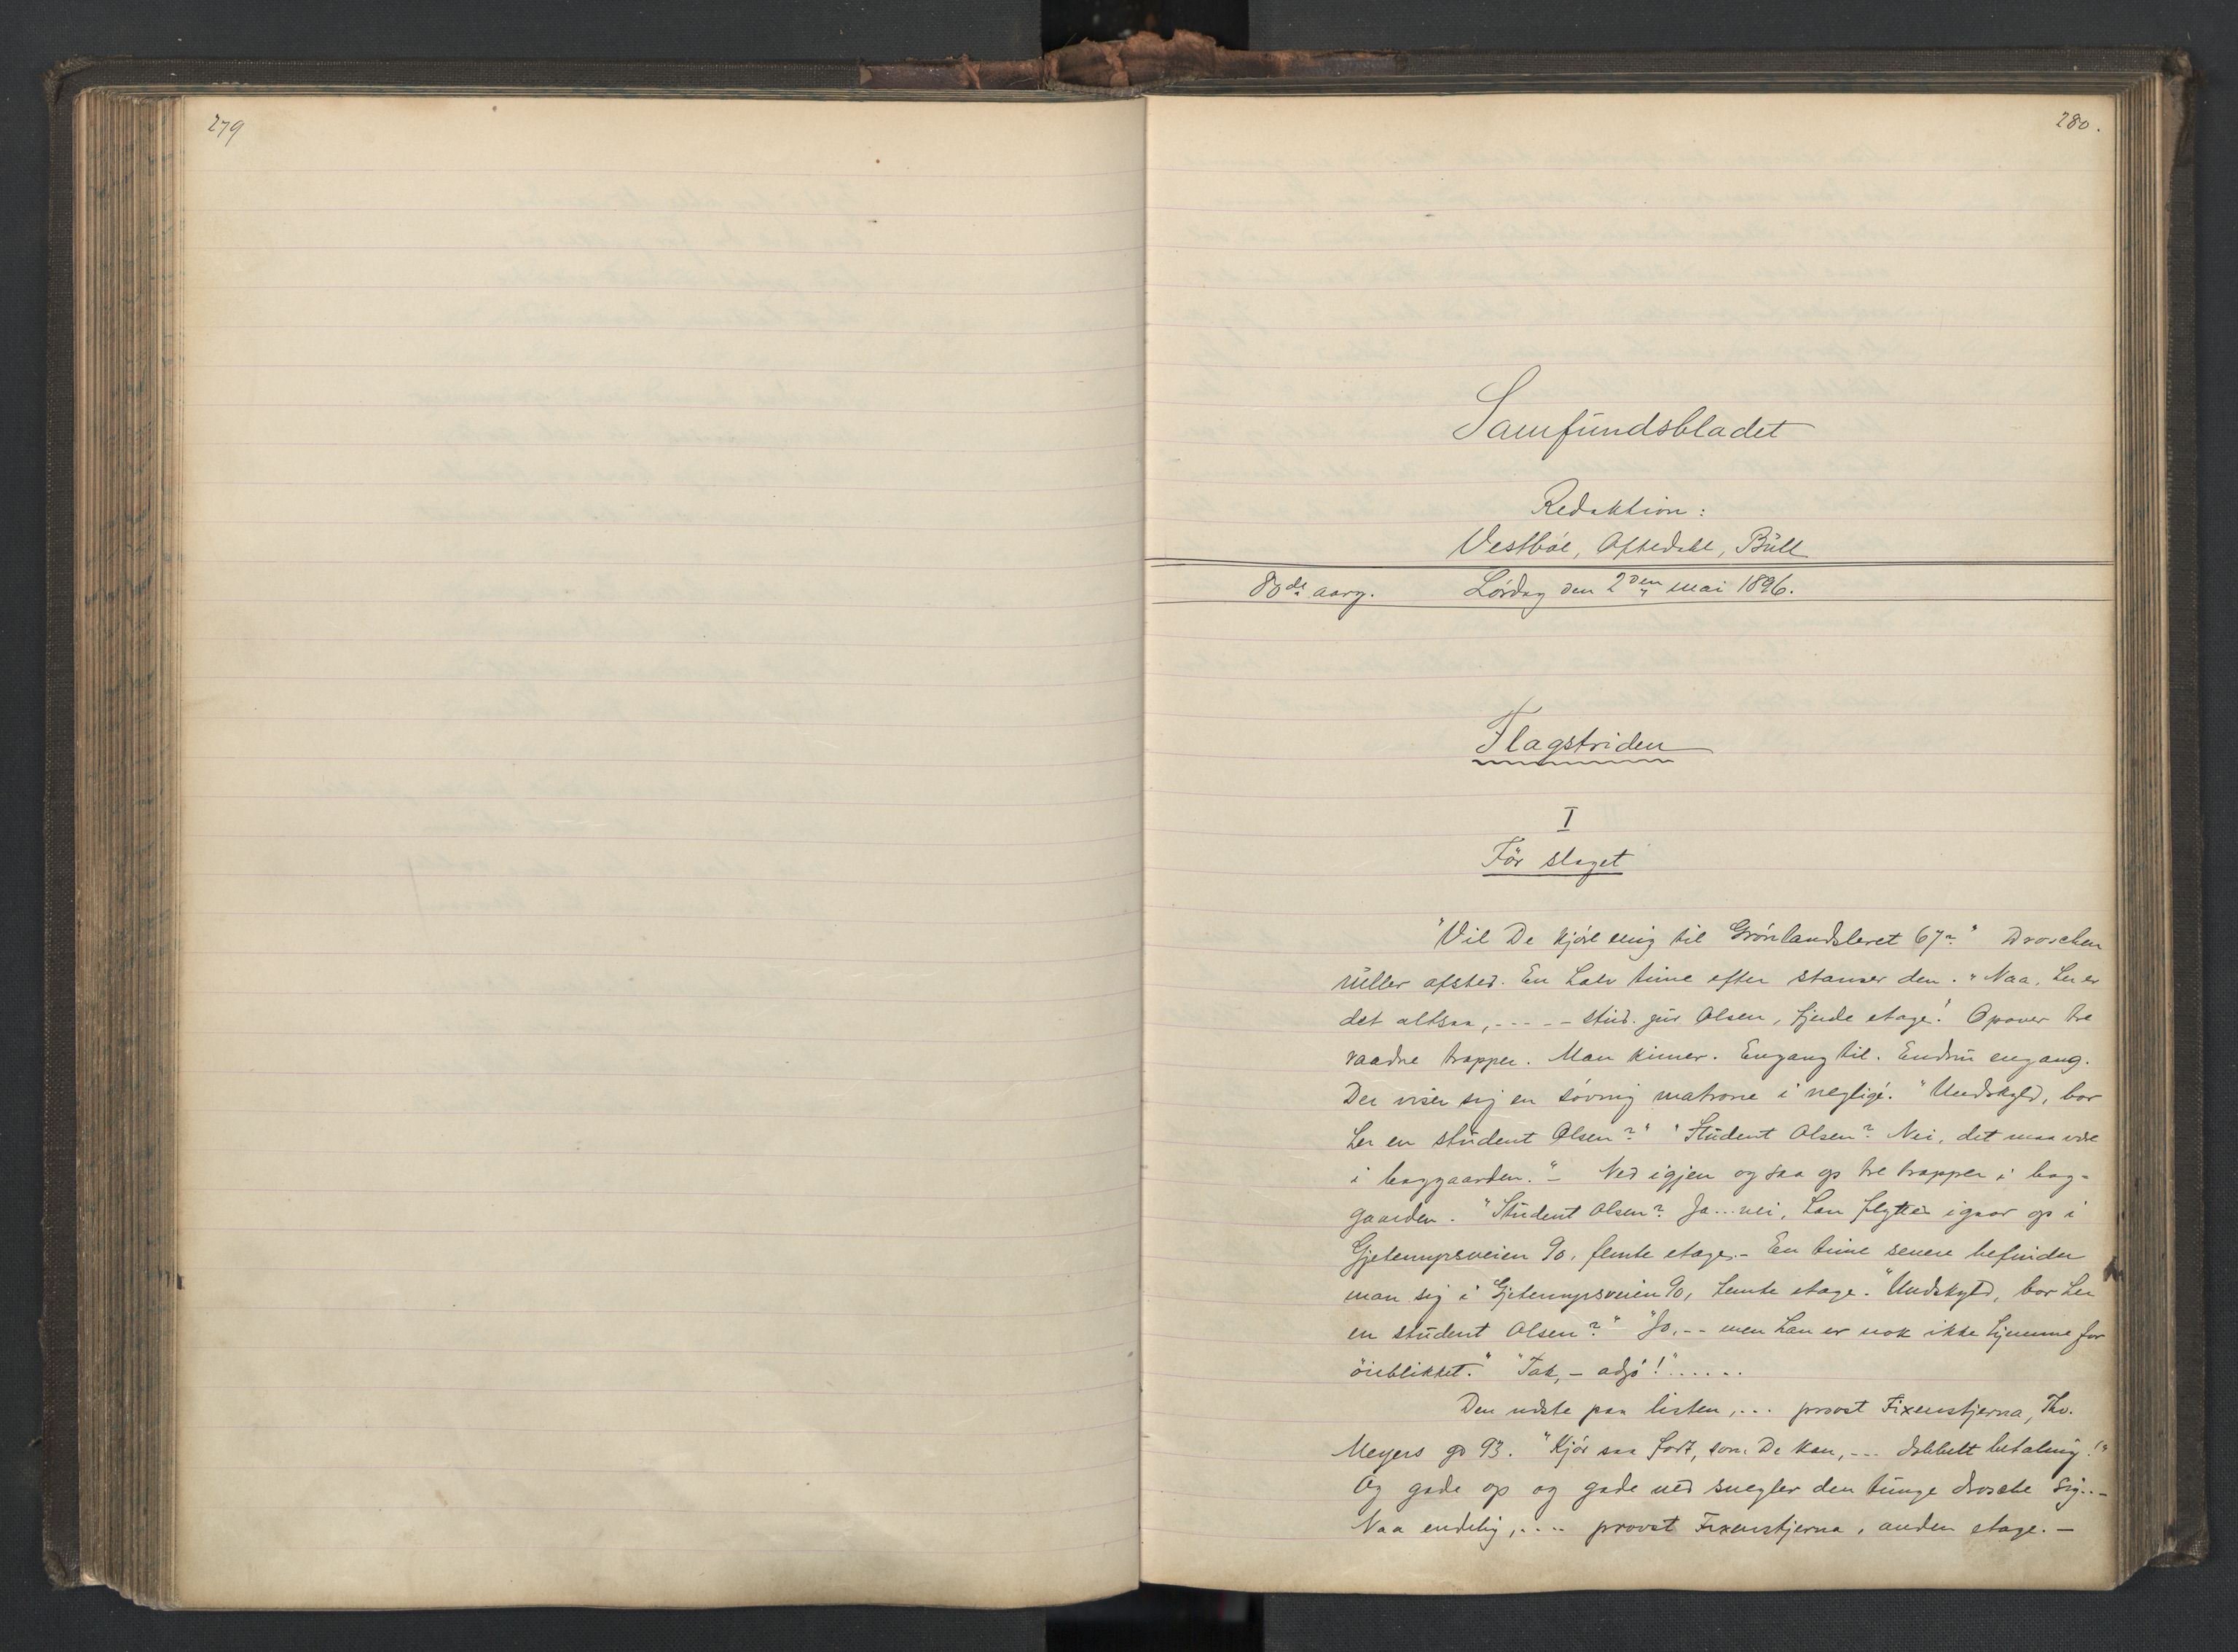 279
280.
Samfundsbladet
Redaktion:
Vestbøe, Aftedahl, Bull
80de aarg. Lørdag den 2den mai 1896.
Flagstriden
I
Før slaget
"Vil De kjøre mig til Grønlandsleret 67?" Droschen
ruller afsted. En halv time efter stanser den. "Naa, her er
det altsaa, ----- stud. jur Olsen, fjerde etage! Opover tre
raadne trapper. Man kimer. Engang til. Endnu engang.
Der viser sig en søvnig matrone i negligé. "Undskyld, bor
her en student Olsen?" "Student Olsen? Nei, det maa være
i baggaarden." – Ned igjen og saa op tre trapper i bag-
gaarden. "Student Olsen? Ja... nei, han flyttet igaar op i
Gjetemyrsveien 90, femte etage. – En time senere befinder
man sig i Gjetemyrsveien 90, femte etage. "Undskyld, bor her
en student Olsen?" "Jo, -- men han er nok ikke hjemme for
øieblikket." "Tak, – adjø!"......
Den næste paa listen, ... provst Fixenstjerna, Thv.
Meyers gd 93. "Kjør saa fort, som De kan, --- dobbelt betaling!"
Og gade op og gade ned snegler den tunge drosche sig..-
Naa endelig, .... provst Fixenstjerna, anden etage. –